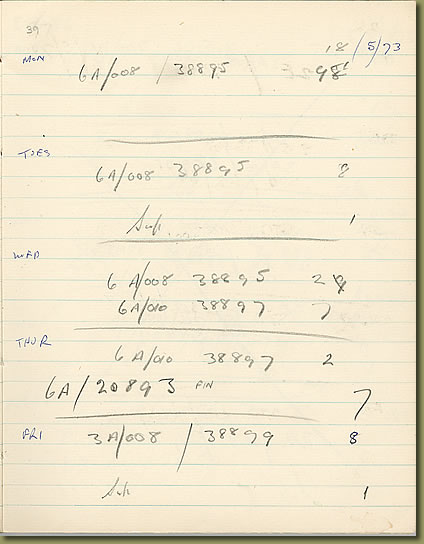 39
18/5/73
MON
6A/008 / 38895
TUES
6A/008 38895 8
1
WED
6A/008 38895 2
6A/010 38897 7
THUR
6A/010 38897 2
6A/20893 PIN 7
FRI
3A/008 / 38899 8
1